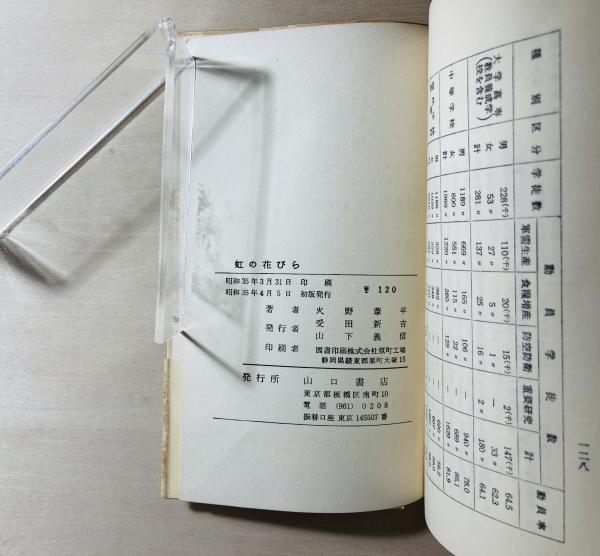 虹の花びら
昭和35年3月31日 印 刷
昭和35年4月5日 初版発行
¥ 120
著 者 火 野 葦 平
発行者 受 田 新 吉
山 下 義 信
印刷者 図書印刷株式会社原町工場
静岡県駿東郡原町大塚15
発行所 山 口 書 店
東京都板橋区南町10
電話 (961) 0208
振替口座 東京 145507番
種別 区分 学徒数 動員学徒数 動員率
軍需生産 食糧増産 防空防衛 重要研究 計
大学高専(教員養成学校を含む)
男 228(千) 110(千) 20(千) 15(千) 2(千) 147(千) 64.5
女 53〃 27〃 5〃 1〃 — 33〃 62.3
計 281〃 137〃 25〃 16〃 2〃 180〃 64.1
中等学校
男 1189〃 669〃 165〃 106〃 — 940〃 78.0
女 800〃 551〃 115〃 22〃 — 689〃 86.1
計 1989〃 1220〃 280〃 129〃 — 1629〃 81.9